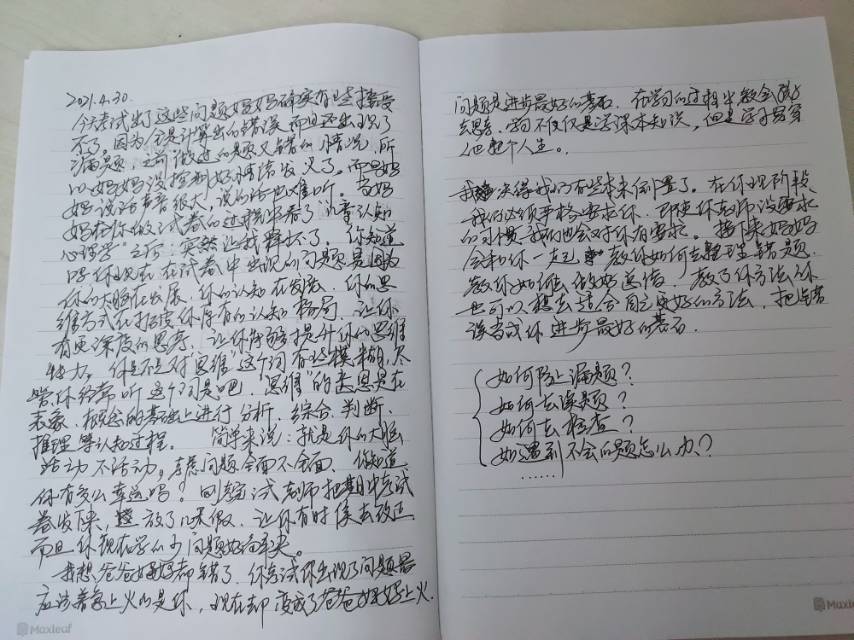 2021.4.30.
今天考试出了这些问题妈妈确实有些接受
不了。因为全是计算出的错误,而且还出现了
漏题,之前做过的题又错的情况,所
以妈妈没控制好情绪发火了。而且妈
妈说话声音很大,说的话也难听。当妈
妈在你做试卷的过程中看了“儿童认知
心理学”之后:突然让我释怀了,你知道
吗你现在在试卷中出现的问题是因为
你的大脑在发展,你的认知在发展,你的思
维方式在打破你原有的认知格局,让你
有更深度的思考,让你能够提升你的思维
能力。你是不是对“思维”这个词有些模糊,尽
管你经常听这个词是吧,“思维”的意思是在
表象、概念的基础上进行分析、综合、判断、
推理等认知过程。 简单来说:就是你的大脑
活动不活动。考虑问题全面不全面,你知道
你有多么幸运吗!
卷发下来,放了几天假,让你有时侯去改正
而且你现在学的少问题好解决。
我想爸爸妈妈都错了,你考试你出现了问题最
应该着急上火的是你,现在却变成了爸爸妈妈上火.
Maxleaf
问题是进步最好的基石,在学习的过程中教会孩子
去思考,学习不仅仅是学课本知识,但是学习贯穿
人的整个人生。
我觉得我们有些本来倒置了。在你现阶段
我们必须严格要求你,即使你老师没要求
的习惯,我们也会对你有要求。接下来妈妈
会和你一起教你如何去整理错题,
教你如何做好总结,教了你方法你
也可以想去适合自己更好的方法,把错
误当成你进步最好的基石.
如何防止漏题?
如何去读题?
如何去检查?
如遇到不会的题怎么办?
……
Maxleaf